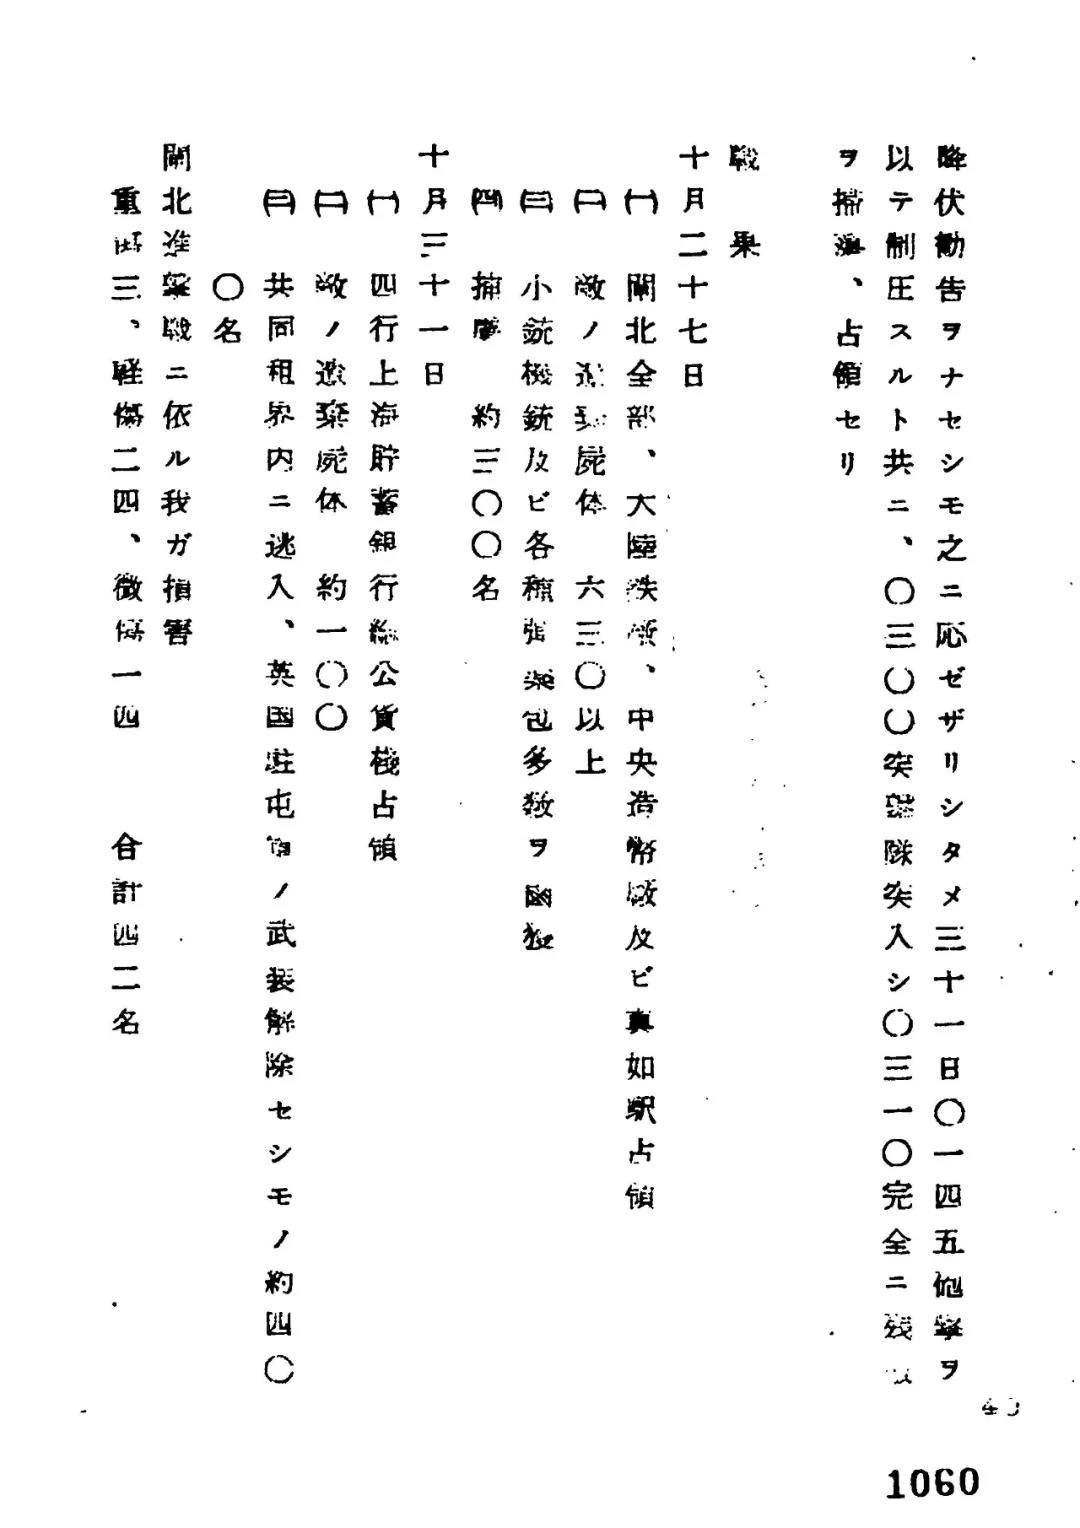 降伏勧告ヲナセシモ之ニ応ゼザリシタメ三十一日〇一四五砲撃ヲ
以テ制圧スルト共ニ、〇三〇〇突撃隊突入シ〇三一〇完全ニ残敵
ヲ掃蕩、占領セリ
戦果
十月二十七日
(一) 閘北全部、大陸鉄廠、中央造幣廠及ビ真如駅占領
(二) 敵ノ遺棄屍体 六三〇以上
(三) 小銃機銃及ビ各種弾薬包多数ヲ鹵獲
(四) 捕虜 約三〇〇名
十月三十一日
(一) 四行上海貯蓄銀行総公貨桟占領
(二) 敵ノ遺棄屍体 約一〇〇
(三) 共同租界内ニ逃入、英国駐屯軍ノ武装解除セシモノ約四〇
〇名
閘北進撃戦ニ依ル我ガ損害
重傷三、軽傷二四、微傷一四 合計四二名
1060